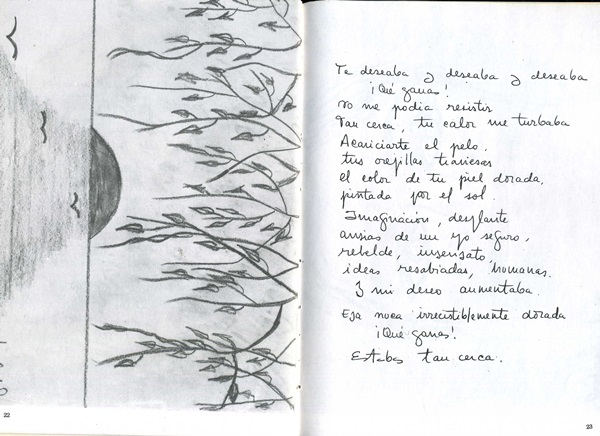 Te deseaba y deseaba y deseaba
¡Qué ganas!
No me podía resistir
Tan cerca, tu calor me turbaba
Acariciarte el pelo.
tus orejillas traviesas
el color de tu piel dorada,
pintada por el sol.
Imaginación, desplante
ansias de un yo seguro,
rebelde, insensato,
ideas resabiadas, humanas.
Y mi deseo aumentaba.
Esa nuca irresistiblemente dorada
¡Qué ganas!
Estabas tan cerca.
22
23